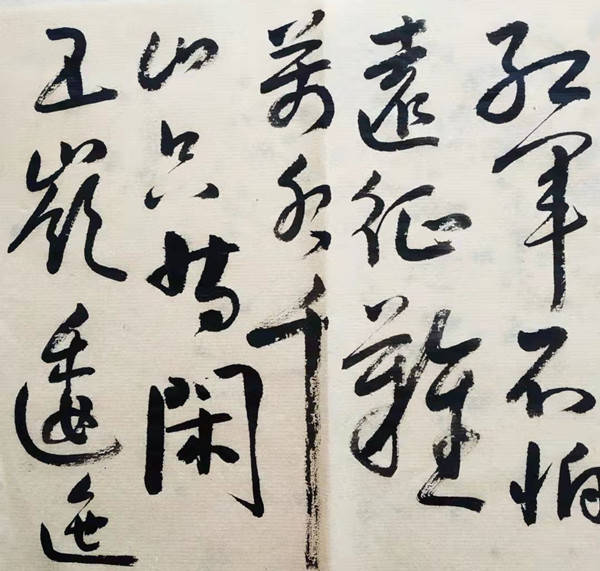 红军不怕
遠征難
萬水千
山只等閑
五嶺逶迤